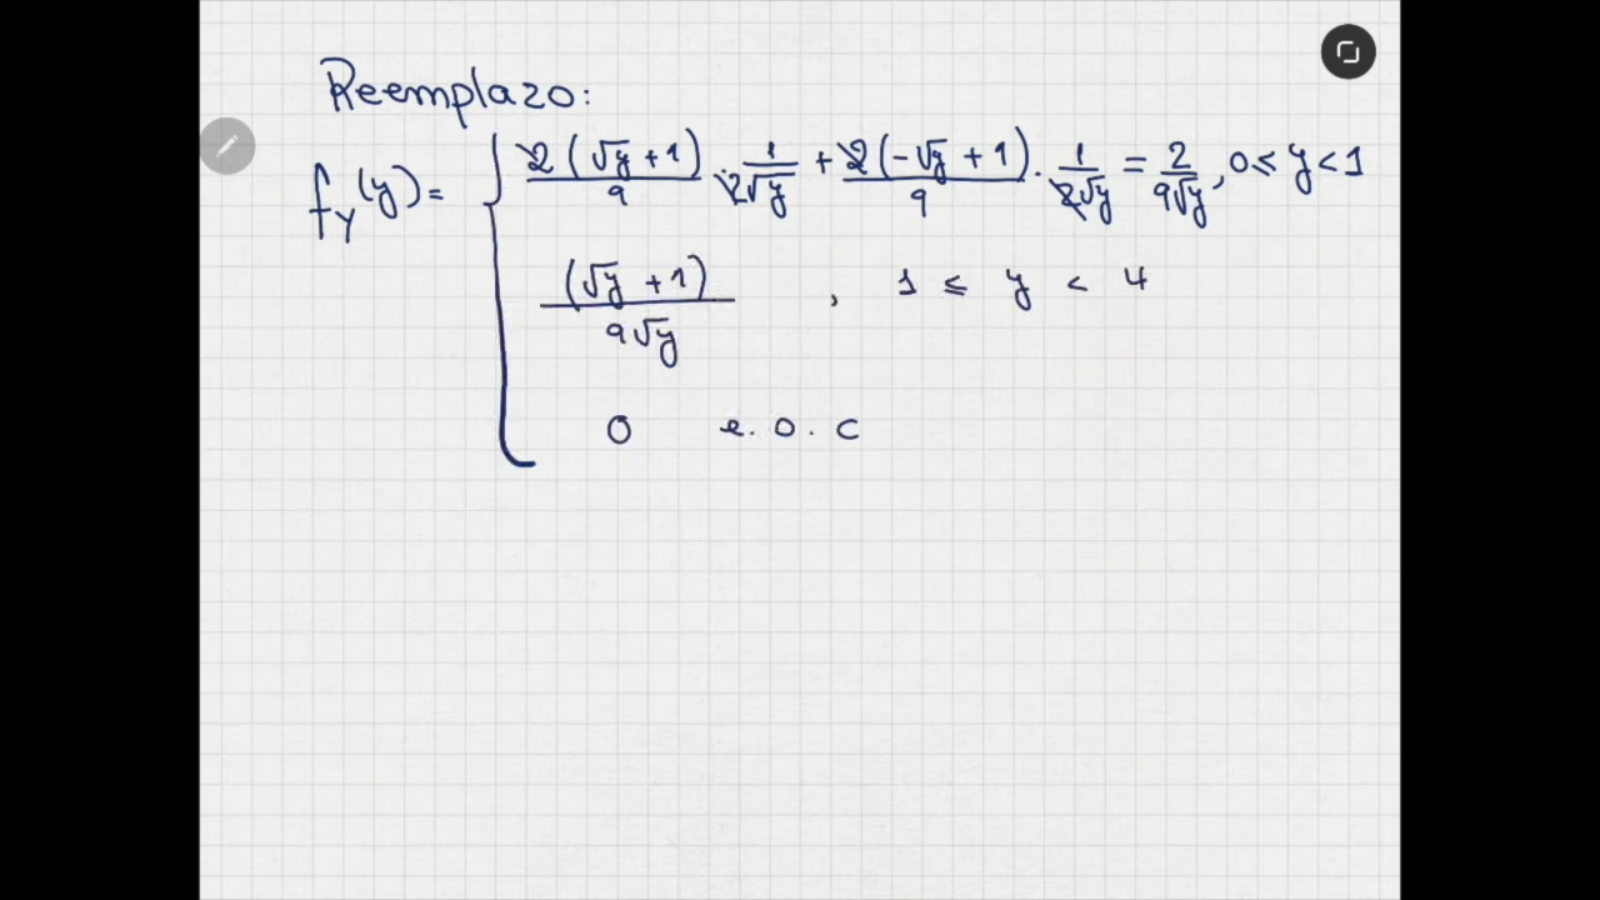 Reemplazo:
f_Y(y) = { 2(√y + 1)/9 · 1/(2√y) + 2(-√y + 1)/9 · 1/(2√y) = 2/(9√y), 0 ≤ y < 1
(√y + 1)/(9√y) , 1 ≤ y < 4
0 e. o. c